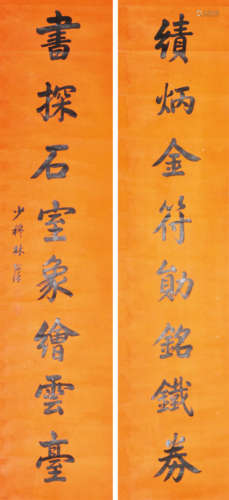 績炳金符勛銘鐵券
書探石室象繪雲臺
少穆林